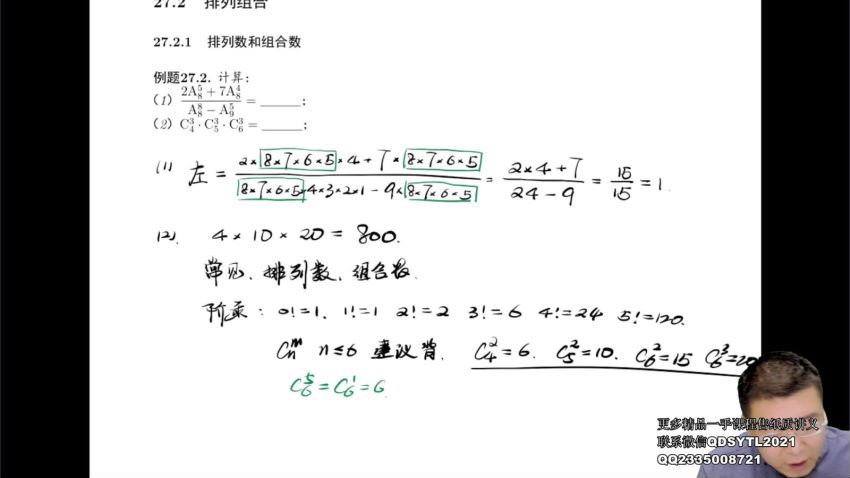 27.2 排列组合
27.2.1 排列数和组合数
例题27.2. 计算:
(1) \frac{2A_8^5 + 7A_8^4}{A_8^8 - A_9^5} = ______;
(2) C_4^3 · C_5^3 · C_6^3 = ______;
(1) 左 = \frac{2×8×7×6×5×4+7×8×7×6×5}{8×7×6×5×4×3×2×1-9×8×7×6×5} = \frac{2×4+7}{24-9} = \frac{15}{15} = 1.
(2). 4×10×20=800.
常见、排列数、组合数.
阶乘: 0!=1, 1!=1 2!=2 3!=6 4!=24 5!=120.
C_n^m n≤6 建议背. C_4^2=6. C_5^2=10. C_6^2=15 C_6^3=20
C_6^5=C_6^1=6.
更多精品一手课程售纸质讲义
联系微信QDSYTL2021
QQ2335008721